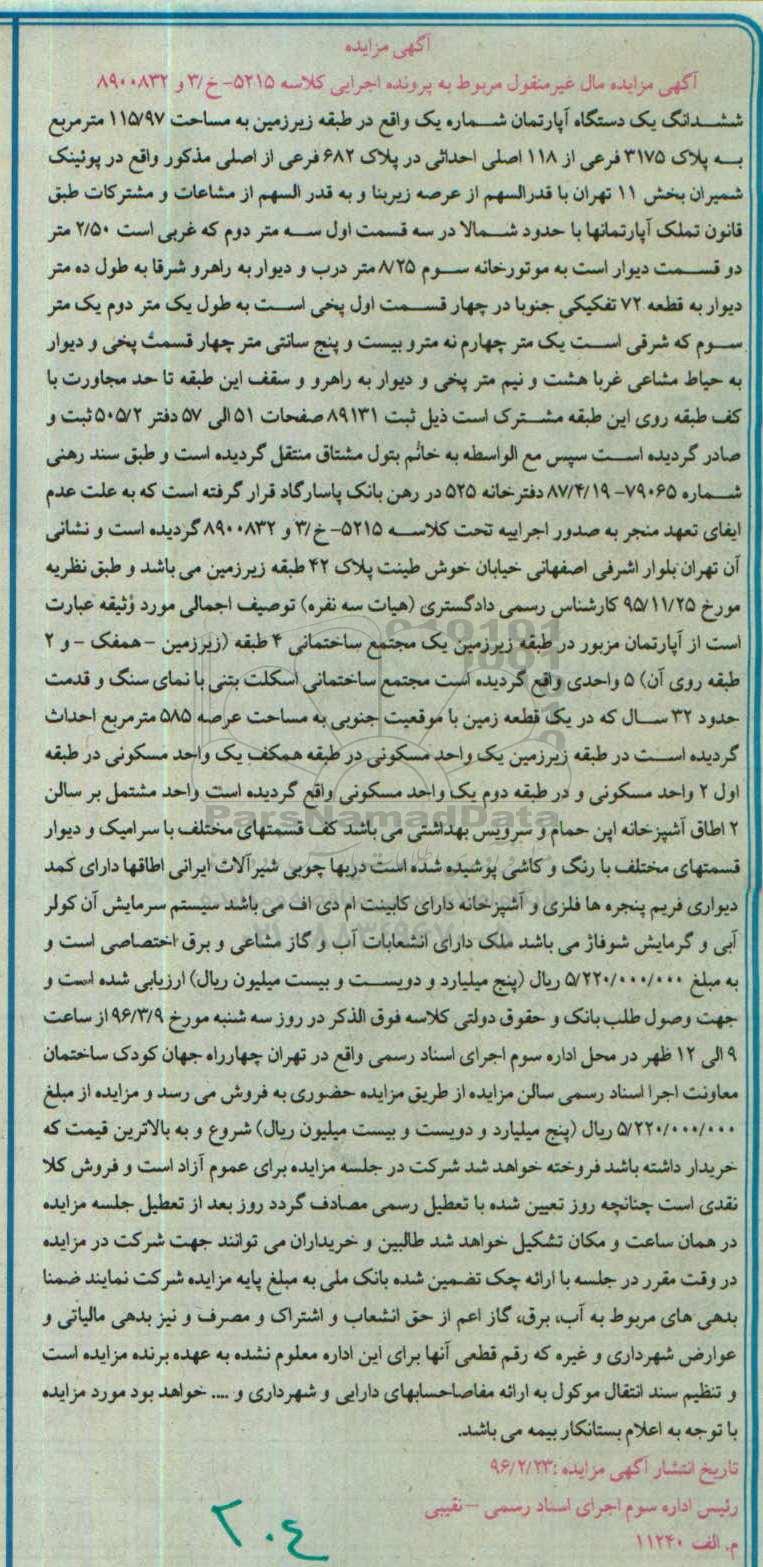 آگهی مزایده
آگهی مزایده مال غیرمنقول مربوط به پرونده اجرایی کلاسه ۵۲۱۵- خ/۳ و ۸۹۰۰۸۳۲
ششدانگ یک دستگاه آپارتمان شماره یک واقع در طبقه زیرزمین به مساحت ۱۱۵/۹۷ مترمربع
به پلاک ۳۱۷۵ فرعی از ۱۱۸ اصلی احداثی در پلاک ۶۸۲ فرعی از اصلی مذکور واقع در پوئینک
شمیران بخش ۱۱ تهران با قدرالسهم از عرصه زیربنا و به قدر السهم از مشاعات و مشترکات طبق
قانون تملک آپارتمانها با حدود شمالا در سه قسمت اول سه متر دوم که غربی است ۲/۵۰ متر
دو قسمت دیوار است به موتورخانه سوم ۸/۲۵ متر درب و دیوار به راهرو شرقا به طول ده متر
دیوار به قطعه ۷۲ تفکیکی جنوبا در چهار قسمت اول پخی است به طول یک متر دوم یک متر
سوم که شرقی است یک متر چهارم نه مترو بیست و پنج سانتی متر چهار قسمت پخی و دیوار
به حیاط مشاعی غربا هشت و نیم متر پخی و دیوار به راهرو و سقف این طبقه تا حد مجاورت با
کف طبقه روی این طبقه مشترک است ذیل ثبت ۸۹۱۳۱ صفحات ۵۱ الی ۵۷ دفتر ۵۰۵/۲ ثبت و
صادر گردیده است سپس مع الواسطه به خانم بتول مشتاق منتقل گردیده است و طبق سند رهنی
شماره ۷۹۰۶۵- ۸۷/۴/۱۹ دفترخانه ۵۲۵ در رهن بانک پاسارگاد قرار گرفته است که به علت عدم
ایفای تعهد منجر به صدور اجراییه تحت کلاسه ۵۲۱۵- خ/۳ و ۸۹۰۰۸۳۲ گردیده است و نشانی
آن تهران بلوار اشرفی اصفهانی خیابان خوش طینت پلاک ۴۲ طبقه زیرزمین می باشد و طبق نظریه
مورخ ۹۵/۱۱/۲۵ کارشناس رسمی دادگستری (هیات سه نفره) توصیف اجمالی مورد وثیقه عبارت
است از آپارتمان مزبور در طبقه زیرزمین یک مجتمع ساختمانی ۴ طبقه (زیرزمین - همفک - و ۲
طبقه روی آن) ۵ واحدی واقع گردیده است مجتمع ساختمانی اسکلت بتنی با نمای سنگ و قدمت
حدود ۳۲ سال که در یک قطعه زمین با موقعیت جنوبی به مساحت عرصه ۵۸۵ مترمربع احداث
گردیده است در طبقه زیرزمین یک واحد مسکونی در طبقه همکف یک واحد مسکونی در طبقه
اول ۲ واحد مسکونی و در طبقه دوم یک واحد مسکونی واقع گردیده است واحد مشتمل بر سالن
۲ اطاق آشپزخانه اپن حمام و سرویس بهداشتی می باشد کف قسمتهای مختلف با سرامیک و دیوار
قسمتهای مختلف با رنگ و کاشی پوشیده شده است دربها چوبی شیرآلات ایرانی اطاقها دارای کمد
دیواری فریم پنجره ها فلزی و آشپزخانه دارای کابینت ام دی اف می باشد سیستم سرمایش آن کولر
آبی و گرمایش شوفاژ می باشد ملک دارای انشعابات آب و گاز مشاعی و برق اختصاصی است و
به مبلغ ۵/۲۲۰/۰۰۰/۰۰۰ ریال (پنج میلیارد و دویست و بیست میلیون ریال) ارزیابی شده است و
جهت وصول طلب بانک و حقوق دولتی کلاسه فوق الذکر در روز سه شنبه مورخ ۹۶/۳/۹ از ساعت
۹ الی ۱۲ ظهر در محل اداره سوم اجرای اسناد رسمی واقع در تهران چهارراه جهان کودک ساختمان
معاونت اجرا اسناد رسمی سالن مزایده از طریق مزایده حضوری به فروش می رسد و مزایده از مبلغ
۵/۲۲۰/۰۰۰/۰۰۰ ریال (پنج میلیارد و دویست و بیست میلیون ریال) شروع و به بالاترین قیمت که
خریدار داشته باشد فروخته خواهد شد شرکت در جلسه مزایده برای عموم آزاد است و فروش کلا
نقدی است چنانچه روز تعیین شده با تعطیل رسمی مصادف گردد روز بعد از تعطیل جلسه مزایده
در همان ساعت و مکان تشکیل خواهد شد طالبین و خریداران می توانند جهت شرکت در مزایده
در وقت مقرر در جلسه با ارائه چک تضمین شده بانک ملی به مبلغ پایه مزایده شرکت نمایند ضمنا
بدهی های مربوط به آب، برق، گاز اعم از حق انشعاب و اشتراک و مصرف و نیز بدهی مالیاتی و
عوارض شهرداری و غیره که رقم قطعی آنها برای این اداره معلوم نشده به عهده برنده مزایده است
و تنظیم سند انتقال موکول به ارائه مفاصاحسابهای دارایی و شهرداری و .... خواهد بود مورد مزایده
با توجه به اعلام بستانکار بیمه می باشد.
تاریخ انتشار آگهی مزایده: ۹۶/۲/۲۳
رئیس اداره سوم اجرای اسناد رسمی - نقیبی
م. الف ۱۱۲۴۰
۲۰۴
ParsNamadData